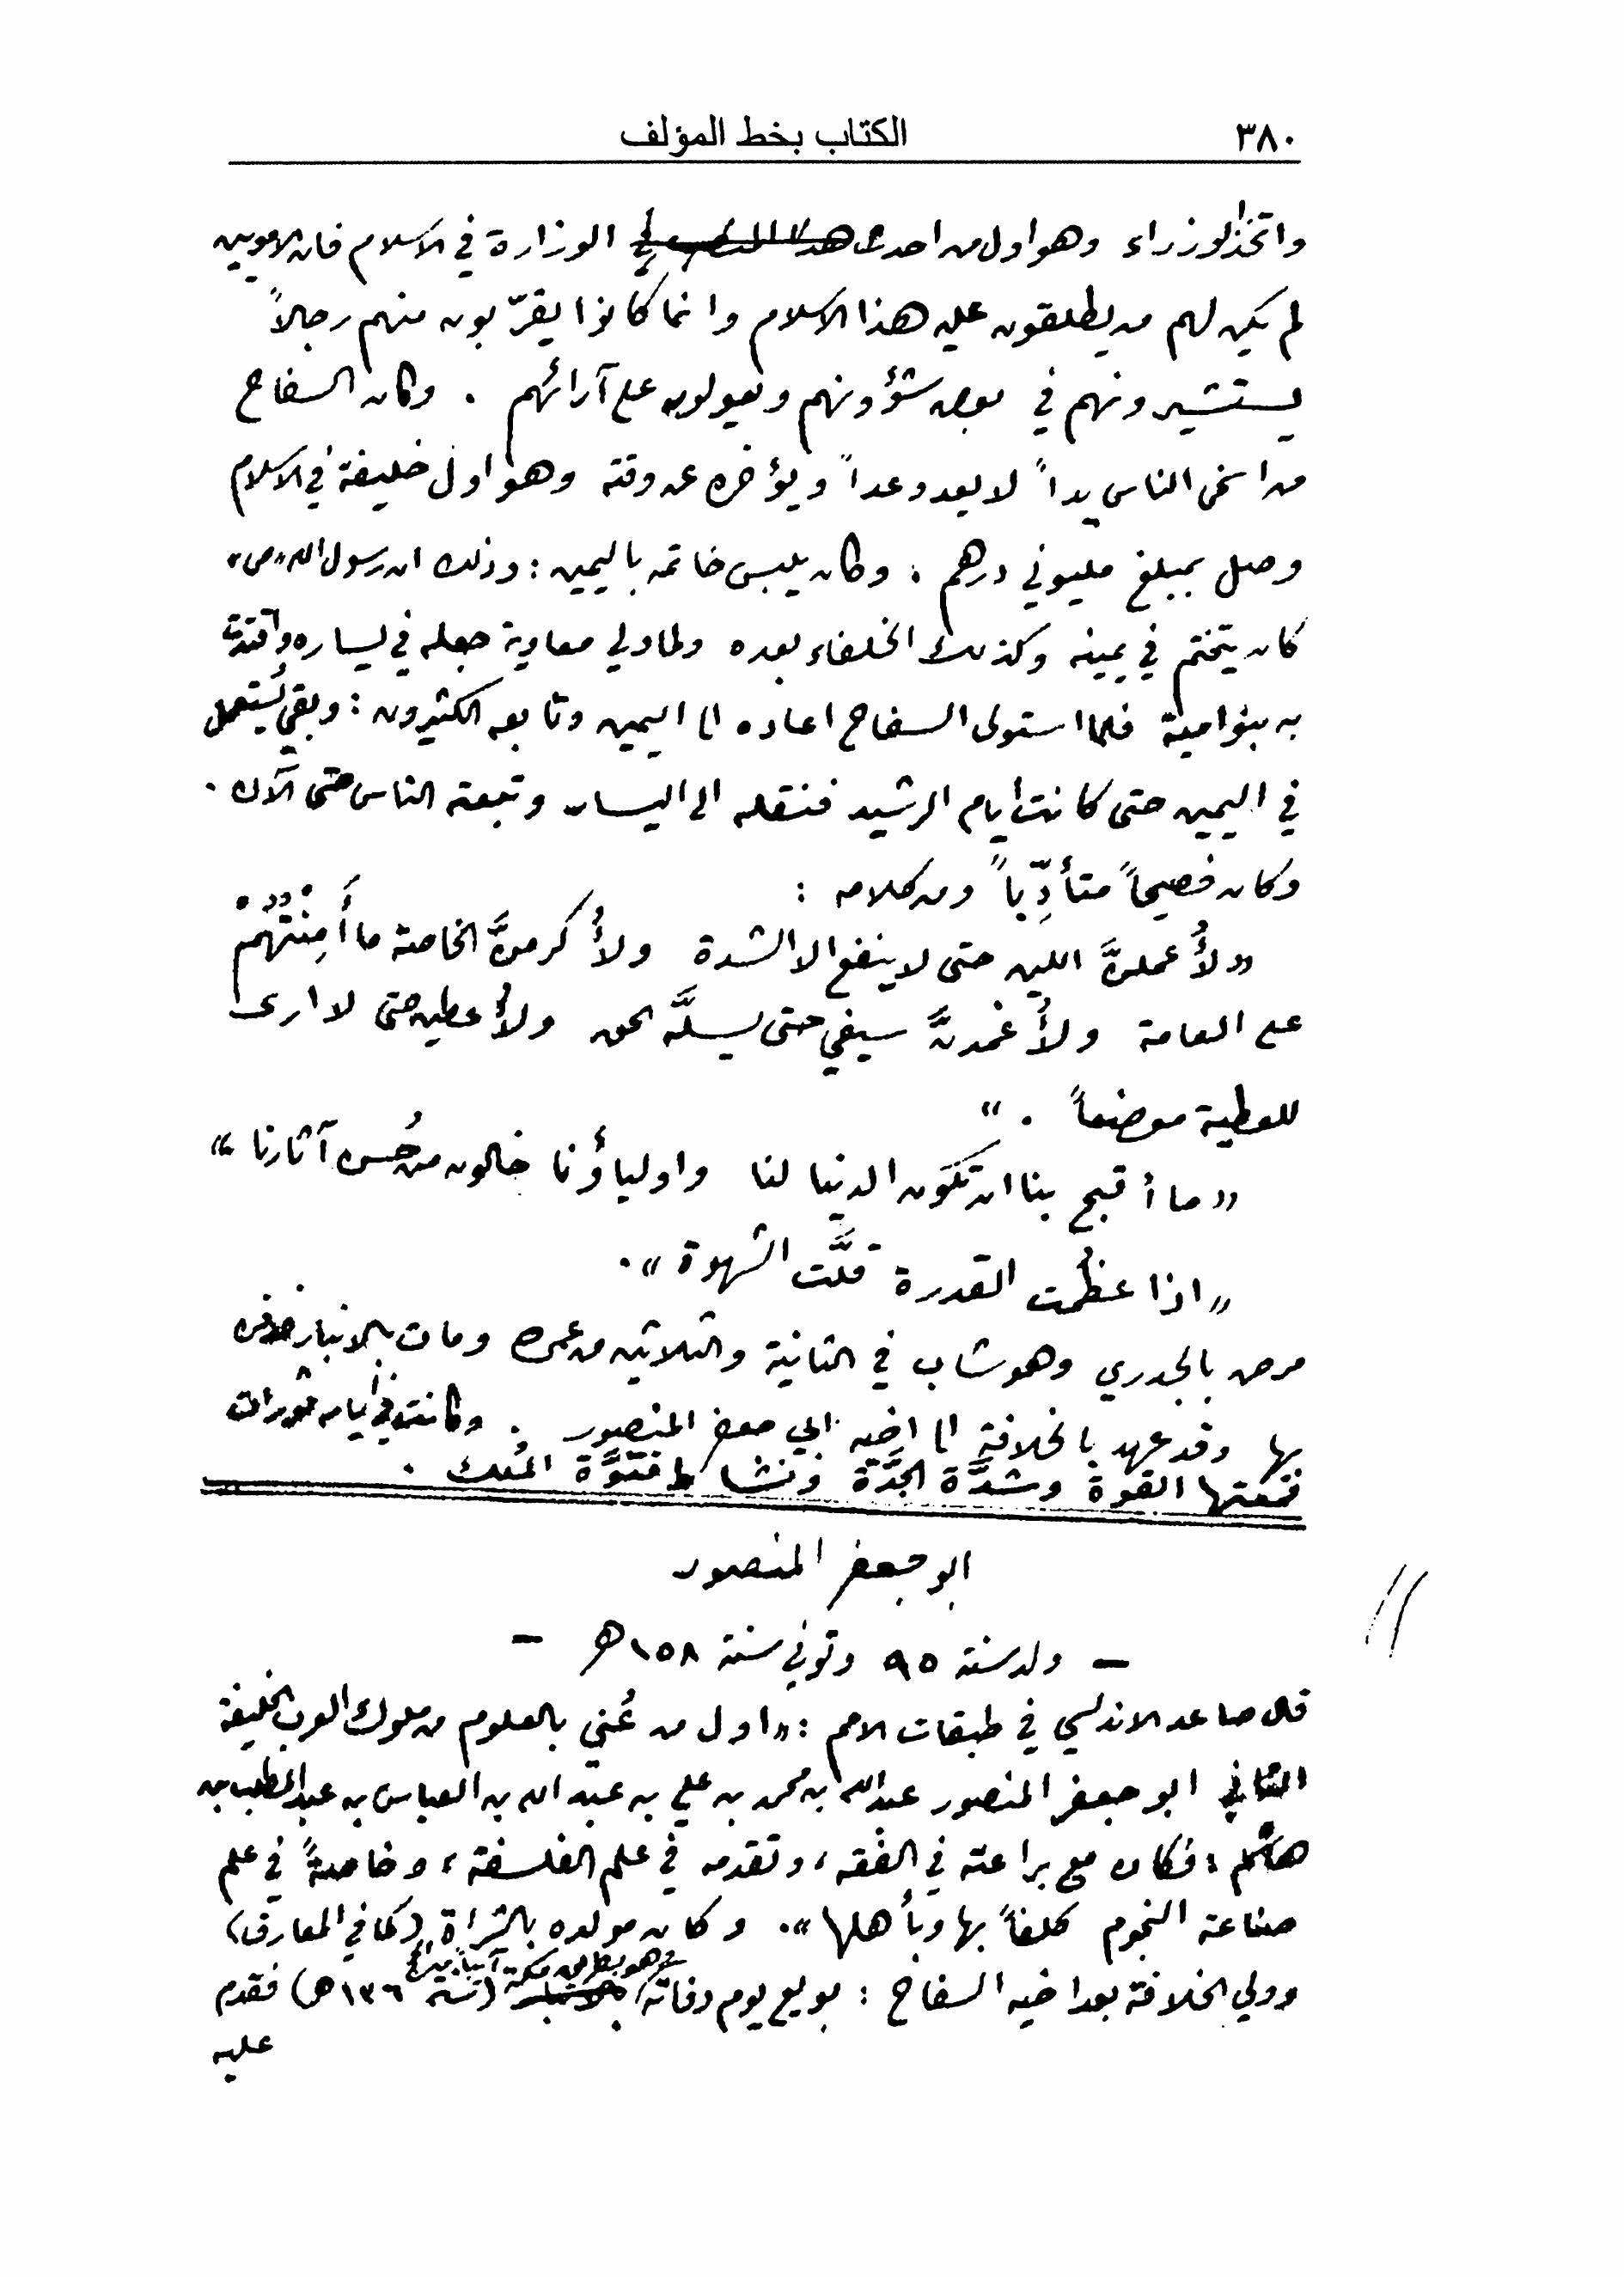 ٣٨٠ الكتاب بخط المؤلف
واتخذ الوزراء وهو اول من احدث الوزارة في الاسلام فان الامويين
لم يكن لهم من يطلقون عليه هذا الاسلام وانما كانوا يقرّبون منهم رجالاً
يستشيرونهم في بعض شؤونهم ويعولون على آرائهم . وكان السفاح
من اسخى الناس يداً لا يعد وعداً ويؤخره عن وقته وهو اول خليفة في الاسلام
وصل بمبلغ مليوني درهم . وكان يلبس خاتمه باليمين : وذلك ان رسول الله «ص»
كان يتختم في يمينه وكذلك الخلفاء بعده ولما ولي معاوية جعله في يساره واقتدت
به بنو امية فلما استولى السفاح اعاده الى اليمين وتابعه الكثيرون : وبقي يُستعمل
في اليمين حتى كانت ايام الرشيد فنقله الى اليسار وتبعته الناس حتى الآن .
وكان فصيحاً متأدِّباً ومن كلامه :
«لأُعملنَّ اللين حتى لا ينفع الا الشدة ولأُكرمنَّ الخاصة ما أَمِنْتُهُمْ
على العامة ولأُغمدنَّ سيفي حتى يسلَّه الحق ولأُعطين حتى لا ارى
للعطية موضعاً . »
«ما أقبح بنا ان تكون الدنيا لنا واولياؤنا خالون من حُسن آثارنا »
«اذا عظُمت القدرة قلَّت الشهوة » .
مرض بالجدري وهو شاب في الثانية والثلاثين من عمره ومات بالانبار
بها وقد عهد بالخلافة الى اخيه ابي جعفر المنصور . وكانت في ايامه ثورات
قمعتها القوة وشدَّة الجدَّة ونشاط فتوَّة المُلك .
ابو جعفر المنصور
– ولد سنة ٩٥ وتوفي سنة ١٥٨ هـ –
قال صاعد الاندلسي في طبقات الامم : «اول من عُني بالعلوم من ملوك العرب الخليفة
الثاني ابو جعفر المنصور عبد الله بن محمد بن علي بن عبد الله بن العباس بن عبد المطلب بن
هاشم : فكان مع براعته في الفقه ، وتقدمه في علم الفلسفة ، وخاصةً في علم
صناعة النجوم كلفاً بها وبأهلها » . وكان مولده بالشراة (كما في المعارف)
وولي الخلافة بعد اخيه السفاح : بويع يوم وفاته وهو بطريق مكة (سنة ١٣٦ هـ) فقدم
عليه